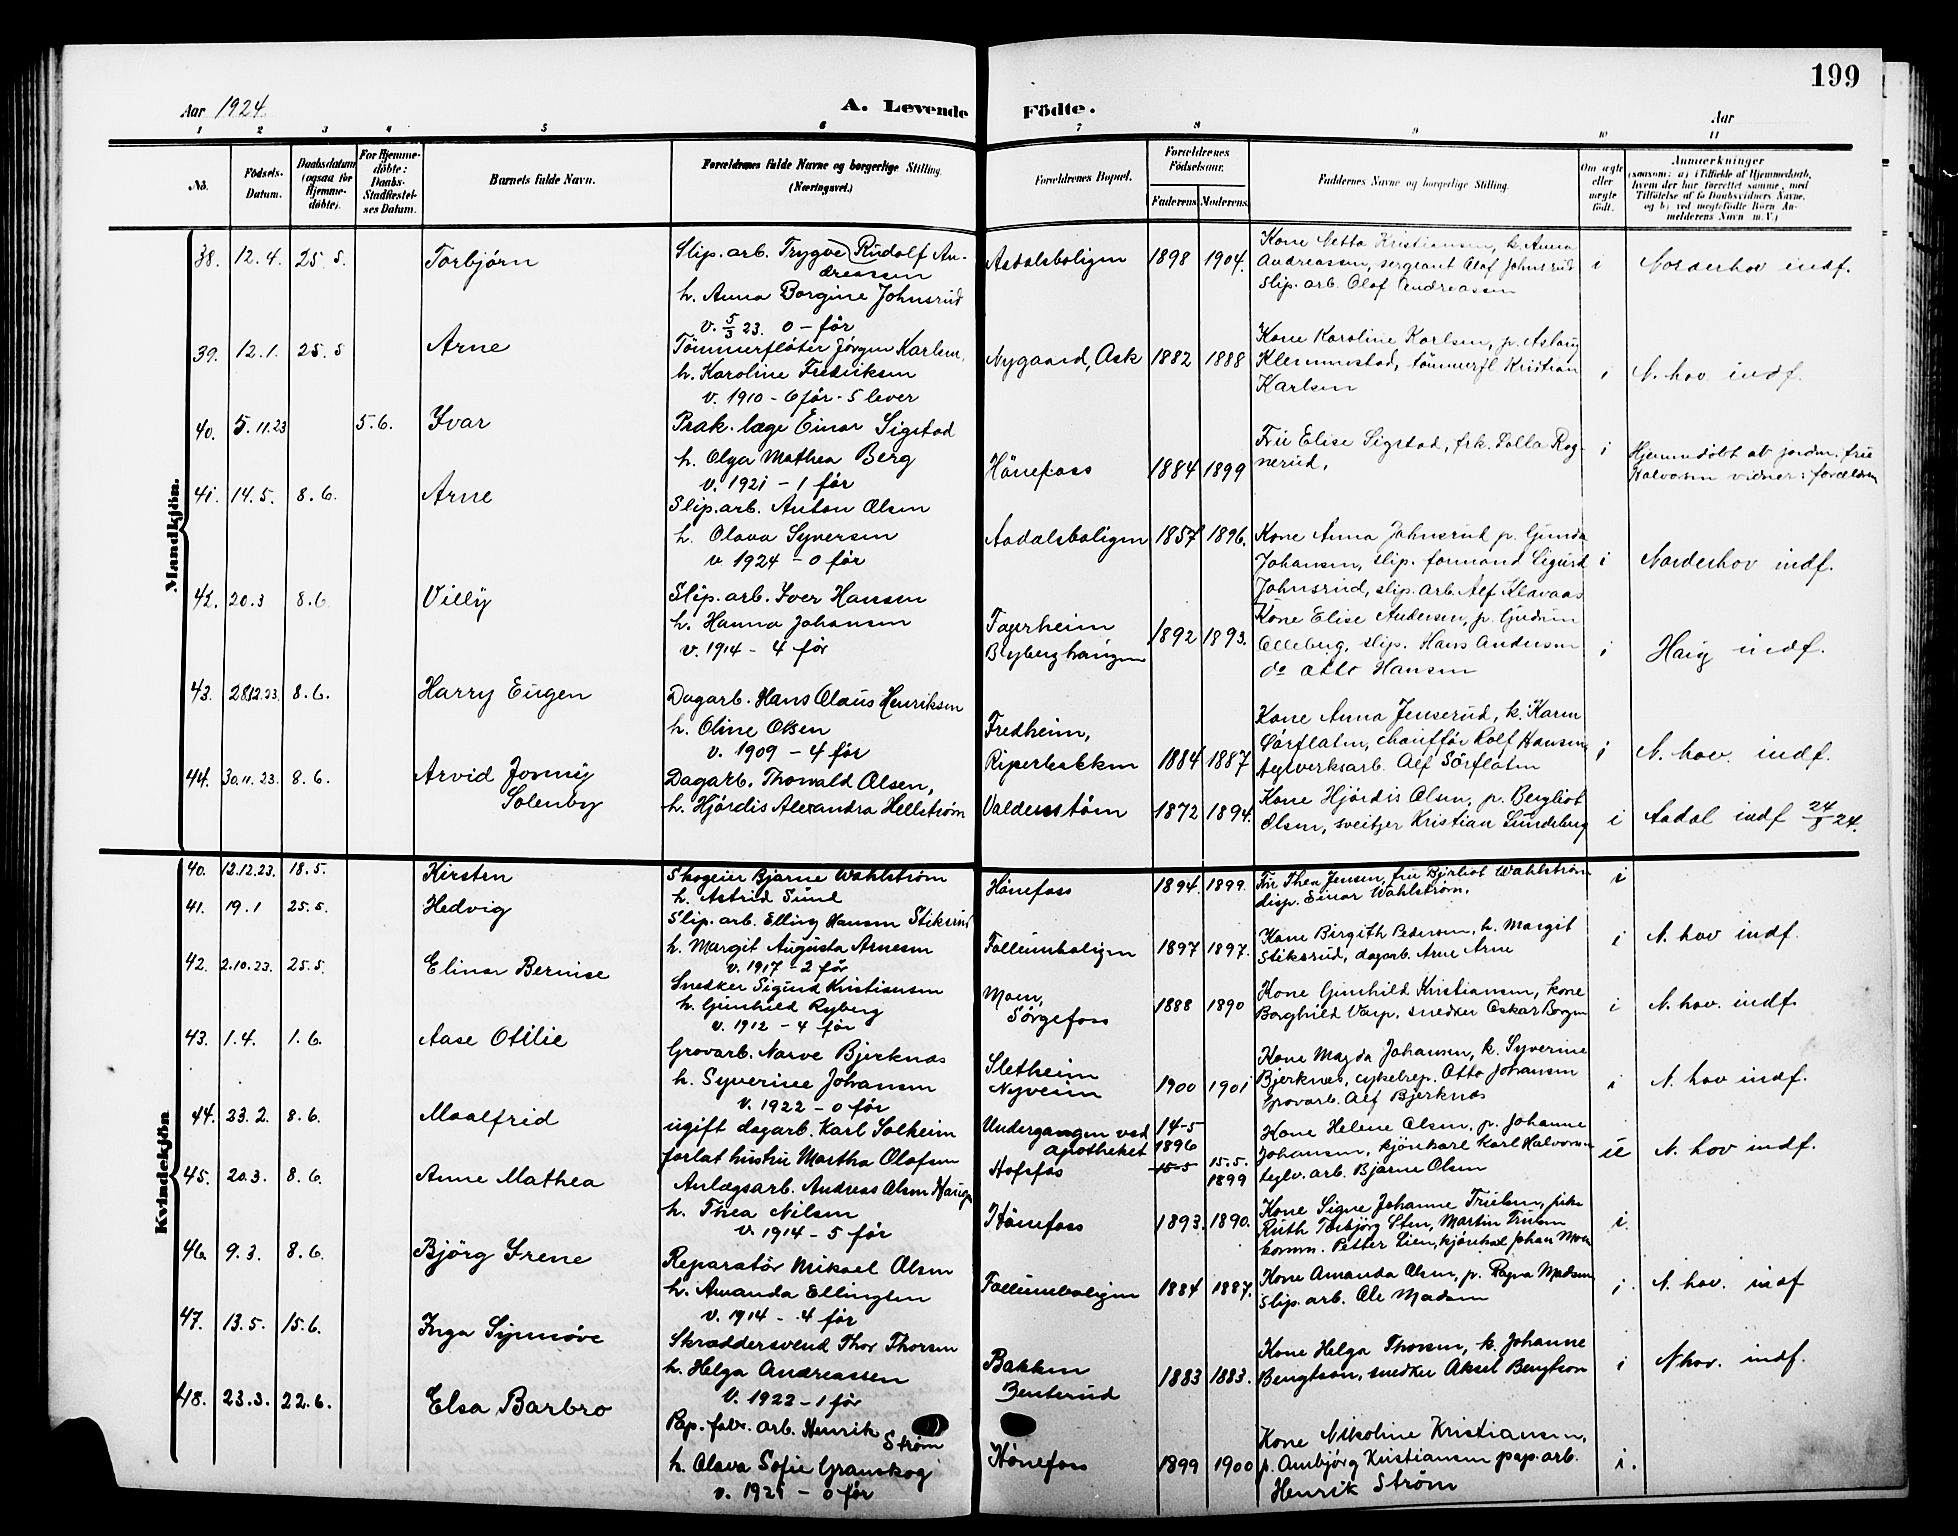 199
Aar 1924.
A. Levende Födte.
Aar
1 2 3 4 5 6 7 8 9 10 11
No.
Födsels-
Datum.
Daabsdatum
(ogsaa for
Hjemme-
döbte).
For Hjemme-
döbte:
Daabs-
Stadfæstel-
ses Datum.
Barnets fulde Navn.
Forældrenes fulde Navne og borgerlige Stilling.
(Næringsvei.)
Forældrenes Bopæl.
Forældrenes
Födselsaar.
Faderens. Moderens.
Faddernes Navne og borgerlige Stilling.
Om ægte
eller
uægte
födt.
Anmærkninger
(saasom: a) i Tilfælde af Hjemmedaab,
hvem der har forrettet samme, med
Tilföielse af to Daabsvidners Navne,
og b) ved uægtefödte Börn An-
melderens Navn m. V.)
Mandkjön.
38. 12.4. 25.5. Torbjørn
Slip. arb. Trygve Rudolf An-
dreassen
h. Anna Borgine Johnsrud
v. 5/3 23. 0 - før
Aadalsboligen 1898 1904.
Kone Netta Kristiansen, k. Anna
Andreassen, sergeant Olaf Johnsrud
Slip. arb. Olaf Andreassen
i Norderhov indf.
39. 12.1. 25.5 Arne
Tømmerfløter Jørgen Karlsen,
h. Karoline Fredriksen
v. 1910 - 6 før - 5 lever
Nygaard, Ask 1882 1888
Kone Karoline Karlsen, p. Aslaug
Klemmestad, tømmerfl Kristian
Karlsen
i N. hov indf.
40. 5.11.23 5.6. Ivar
Prak. læge Einar Sigstad
h. Olga Mathea Berg
v. 1921 - 1 før
Hønefoss 1884 1899
Fru Elise Sigstad, frk. Lalla Rog-
nerud,
i Hjemmedøbt at jordm. frue
Halvorsen vidner: forældren
41. 14.5. 8.6. Arne
Slip. arb. Anton Olsen
h. Olava Syversen
v. 1924 - 0 før
Aadalsboligen 1857 1896.
Kone Anna Johnsrud p. Gunda
Johansen, slip. formand Sigurd
Johnsrud, slip. arb. Alf Klavaas
i Norderhov indf.
42. 20.3 8.6 Villy
Slip. arb. Iver Hansen
h. Hanna Johansen
v. 1914 - 4 før
Fagerheim
1892 1893.
Kone Elise Andersen, p. Gudrun
Olleberg, slip. Hans Andersen
do Otto Hansen
i Haug indf.
43. 28.12.23. 8.6. Harry Eugen
Dagarb. Hans Olaus Henriksen
h. Oline Olsen
v. 1909 - 4 før
Fredheim,
Riperbakken 1884 1887
Kone Anna Jenserud, k. Karen
Sørflaten, chauffør Rolf Hansen,
teglverksarb. Alf Sørflaten
i N. hov. indf.
44. 30.11.23. 8.6. Arvid Jonny
Solenby
Dagarb. Thorvald Olsen,
h. Hjørdis Alexandra Hellstrøm
Valdenstøm 1872 1894.
Kone Hjørdis Olsen, p. Bergliot
Olsen, sveitzer Kristian Lundeberg
i Aadal indf 24/8 24.
Kvindekjön
40. 12.12.23. 18.5. Kirsten
Skogeier Bjarne Wahlstrøm
h. Astrid Sund
Hønefoss 1894. 1899.
Fru Thea Jensen, fru Bjerliot Wahlstrøm
disp. Einar Wahlstrøm.
i
41. 19.1 25.5. Hedvig
Slip. arb. Elling Hansen Stiksrud
h. Margit Augusta Arnesen
v. 1917 - 2 før
Follumboligen 1897 1897.
Kone Birgith Pedersen, h. Margit
Stiksrud, dagarb. Arne Arne
i N. hov indf.
42. 2.10.23. 25.5. Elinor Bernise
Snedker Sigurd Kristiansen
h. Gunhild Ryberg
v. 1912 - 4 før
Moen,
Sørgefoss 1888 1890
Kone Gunhild Kristiansen, kone
Borghild Varp, snedker Oskar Borgen
i N. hov. indf.
43. 1.4. 1.6. Aase Otilie
Grovarb. Narve Bjerknæs
h. Syverine Johansen
v. 1922 - 0 før
Sletheim
Nyveien 1900 1901
Kone Magda Johansen, k. Syverine
Bjerknæs, cykelrep. Otto Johansen
Grovarb. Alf Bjerknæs
i N. hov indf.
44. 23.2. 8.6. Maalfrid
ugift dagarb. Karl Solheim
forlat hustru Martha Olafsen
Undergangen ved
apotheket
Hofsfos
14-5
1896
15-5 15.5.
1899
Kone Helene Olsen, p. Johanne
Johansen, kjørekarl Karl Halvorsen
teglv. arb. Bjarne Olsen
u N. hov indf.
45. 20.3. 8.6. Anne Mathea
Anlægsarb. Andreas Olsen Hauge
h. Thea Nilsen
v. 1914 - 5 før
Hønefoss 1893. 1890.
Kone Signe Johanne Trulsen, pike
Ruth Torbjørg Sten, Martin Trulsen
komm. Petter Lien, kjørekarl Johan Moen
i.
46. 9.3. 8.6. Bjørg Irene
Reparatør Mikael Olsen
h. Amanda Ellingsen
v. 1914 - 4 før
Follumboligen 1884 1887.
Kone Amanda Olsen, p. Ragna Madsen
Slip. arb. Ole Madsen
i. N. hov. indf
47. 13.5. 15.6. Inga Synnøve
Skræddersvend Thor Thorsen
h. Helga Andreassen
v. 1922 - 1 før
Bakken
Benterud 1883 1883.
Kone Helga Thorsen, k. Johanne
Bengtson, snedker Aksel Bengtson
i N hov. indf.
48. 23.3. 22.6. Elsa Barbro
Pap. fabr. arb. Henrik
Strøm
h. Olava Sofie Granskog
v. 1921 - 0 før
Hønefoss 1899 1900
Kone Nikoline Kristiansen,
p. Ambjørg Kristiansen pap. arb.
Henrik Strøm
i.